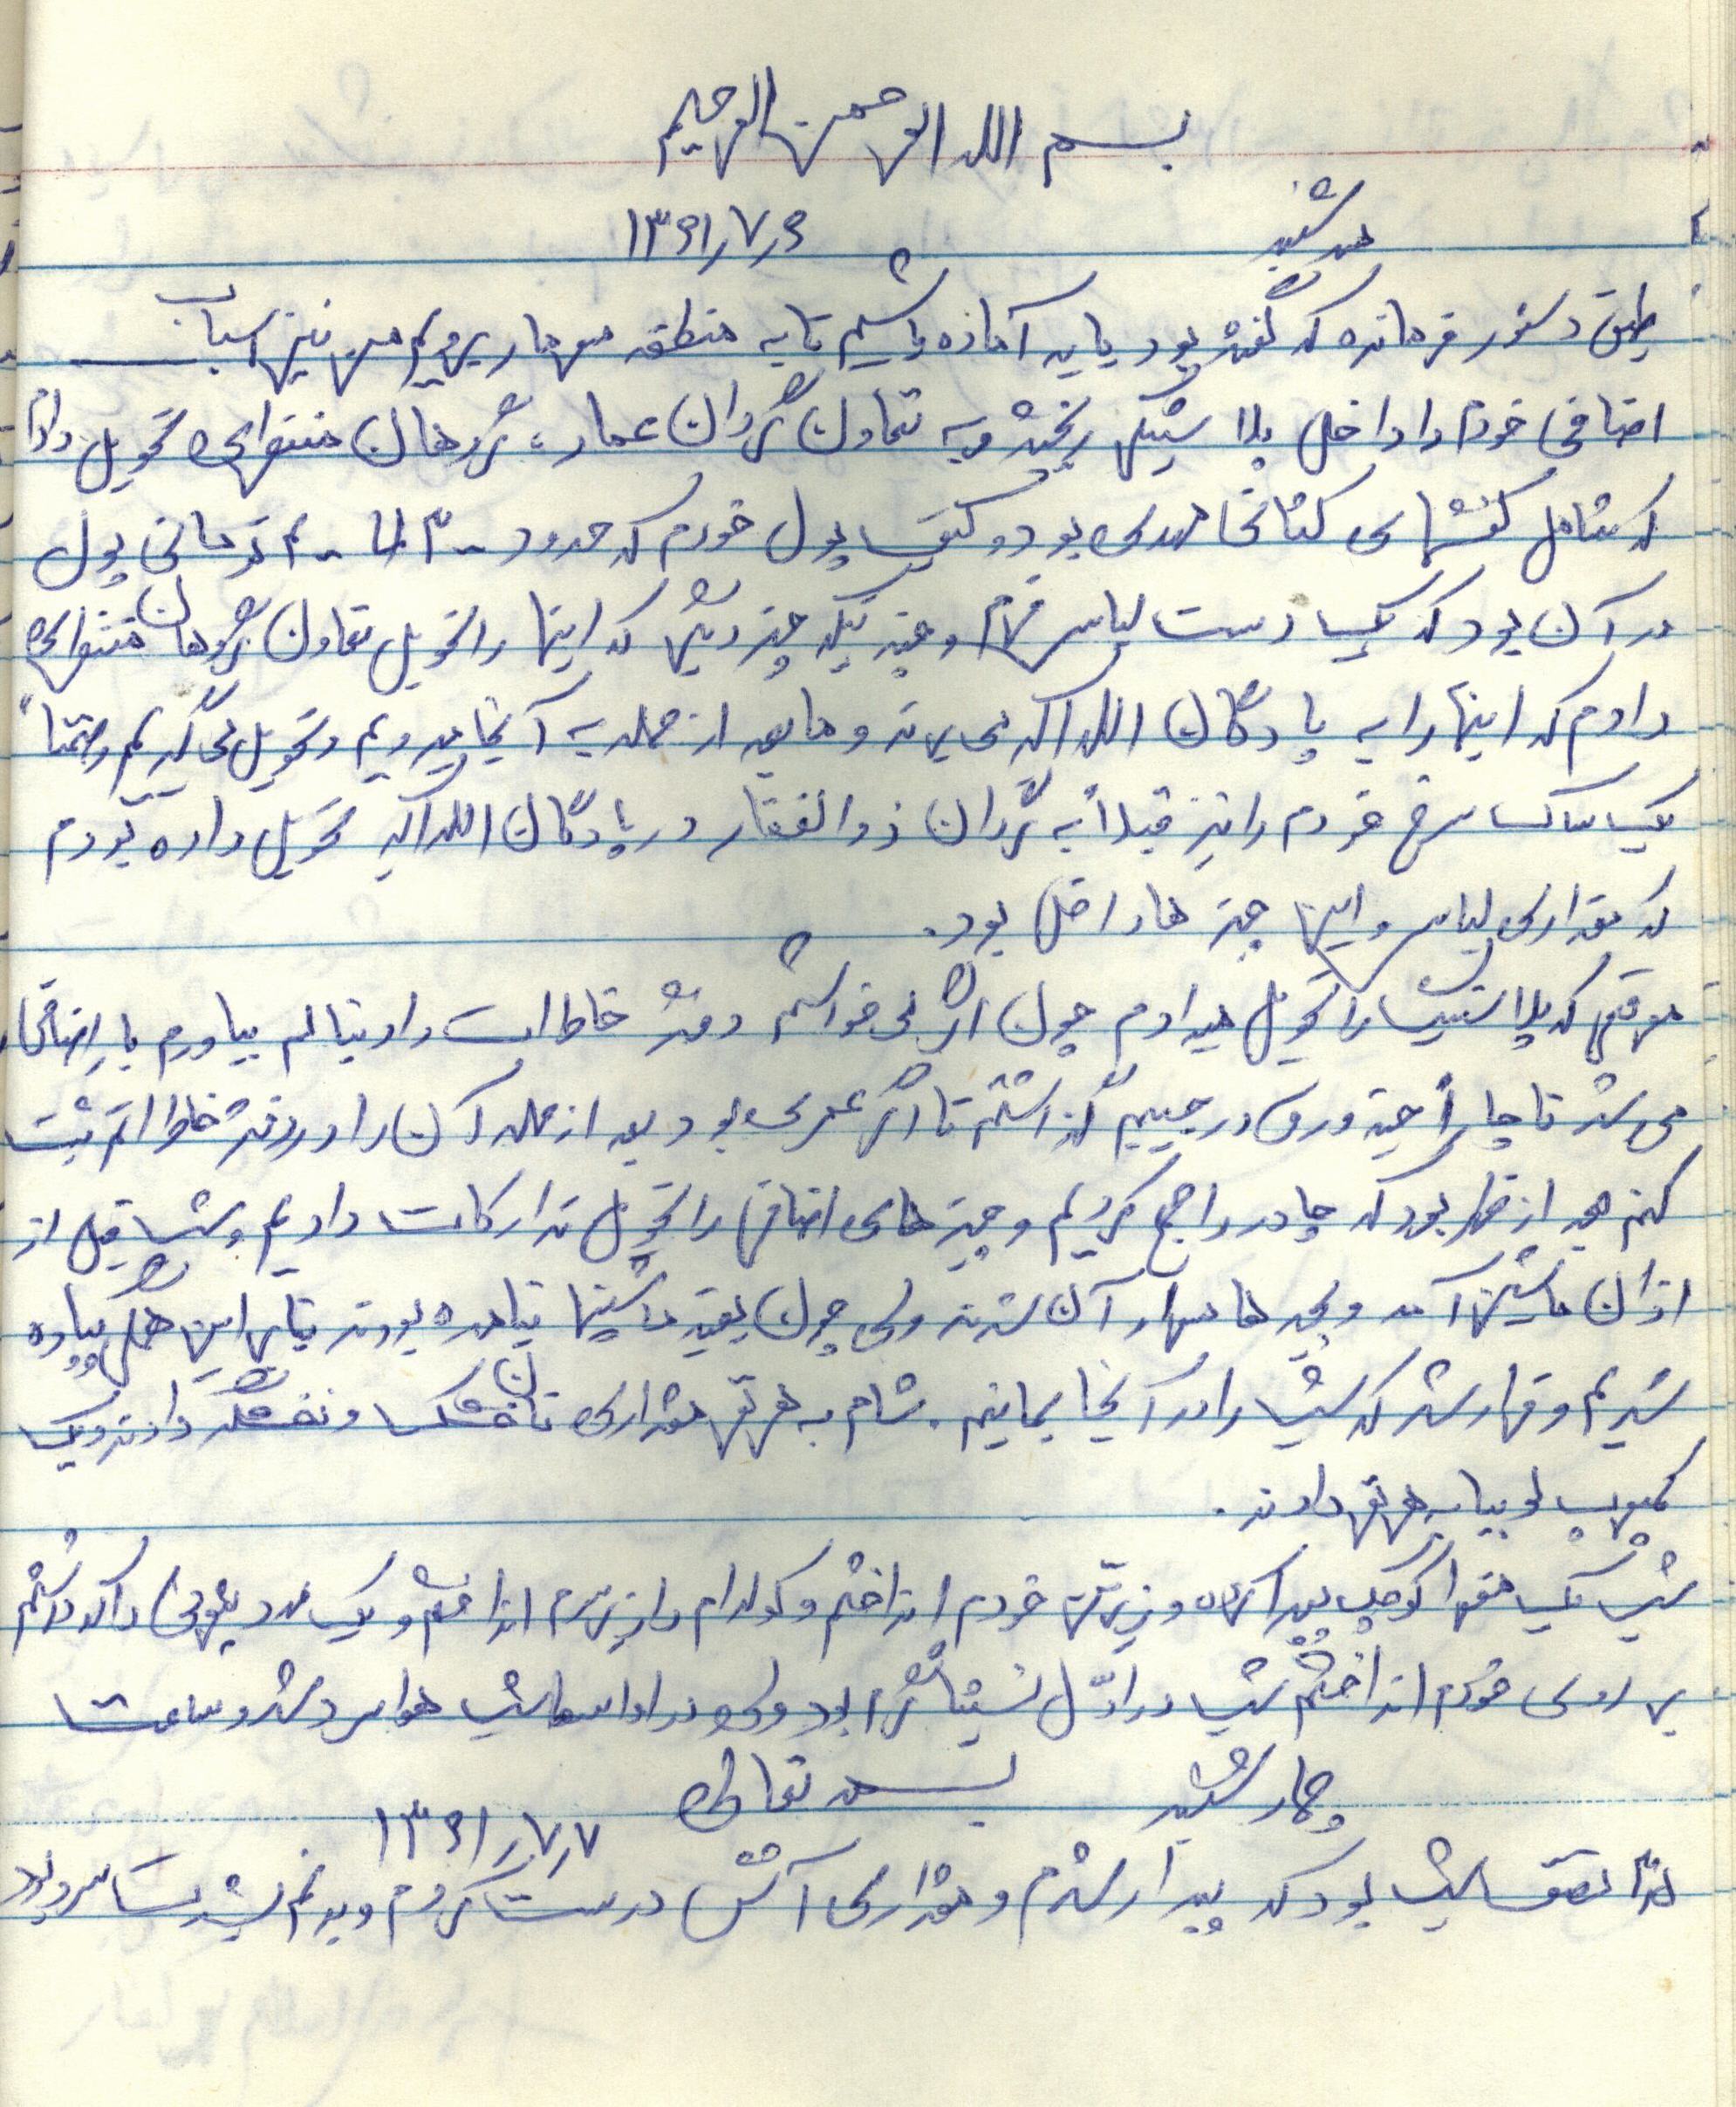 بسم الله الرحمن الرحیم
سه شنبه ۱۳۶۱٫۷٫۶
طبق دستور فرمانده که گفته بود باید آماده باشیم تا به منطقه سومار برویم من نیز اسباب
اضافی خودم را داخل پلاستیکی ریخته و به تعاون گردان عمار، گروهان منتظرالمهدی تحویل دادم
که شامل کفشهای کتانی مهدی بود و کیف پول خودم که حدود ۳۰۰ الی ۴۰۰ تومانی پول
در آن بود که یک دست لباس فرم و چند تیکه چیز دیگر که اینها را تحویل تعاون گروهان
دادم که اینها را به پادگان الله اکبر می برند و ما بعد از حمله به آنجا میرویم و تحویل می گیریم و ضمناً
یک ساک سرخ خودم را نیز قبلاً به گردان ذوالفقار در پادگان الله اکبر تحویل داده بودم
که مقداری لباس و اینها چیز ها داخل بود.
موقعی که پلاستیک را تحویل میدادم چون اگر می خواستم دفتر خاطرات را دنبالم بیاورم بار اضافی
می شد ناچاراً چند ورق در جیبم گذاشتم تا اگر عمری بود بعد از حمله آن را در دفتر خاطراتم ثبت
کنم بعد از ظهر بود که چادر را جمع کردیم و چیز های اضافی را تحویل تدارکات دادیم و شب قبل از
اذان ماشین آمد و بچه ها سوار آن شدند ولی چون بقیه ماشینها نیامده بودند بنابر این همگی پیاده
شدیم و قرار شد که شب را در آنجا بمانیم. شام به هر نفر مقداری نان خشک و دادند و یک
کمپوت لوبیا به هر نفر دادند.
شب یک مقوا کوچک پیدا کرده و زیر خودم انداختم و کوله ام را زیر سرم انداختم و یک عدد پتوئی را که داشتم
بر روی خودم انداختم شب در اوّل نسبتاً گرم بود ولی در اواسط شب هوا سرد شد و ساعت
چهار شنبه بسمه تعالی ۱۳۶۱٫۷٫۷
نصف شب بود که بیدار شدم و مقداری آتش درست کردم و بدنم بشدت سرد بود